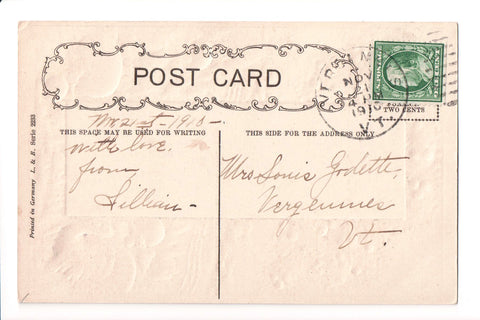 POST CARD
Nov 21st 1910 -
THIS SPACE MAY BE USED FOR WRITING
THIS SIDE FOR THE ADDRESS ONLY
with love
from
Lillian -
Mrs Louis Godette,
Vergennes
Vt.
TWO CENTS
VT.
Printed in Germany L. & E. Serie 2233